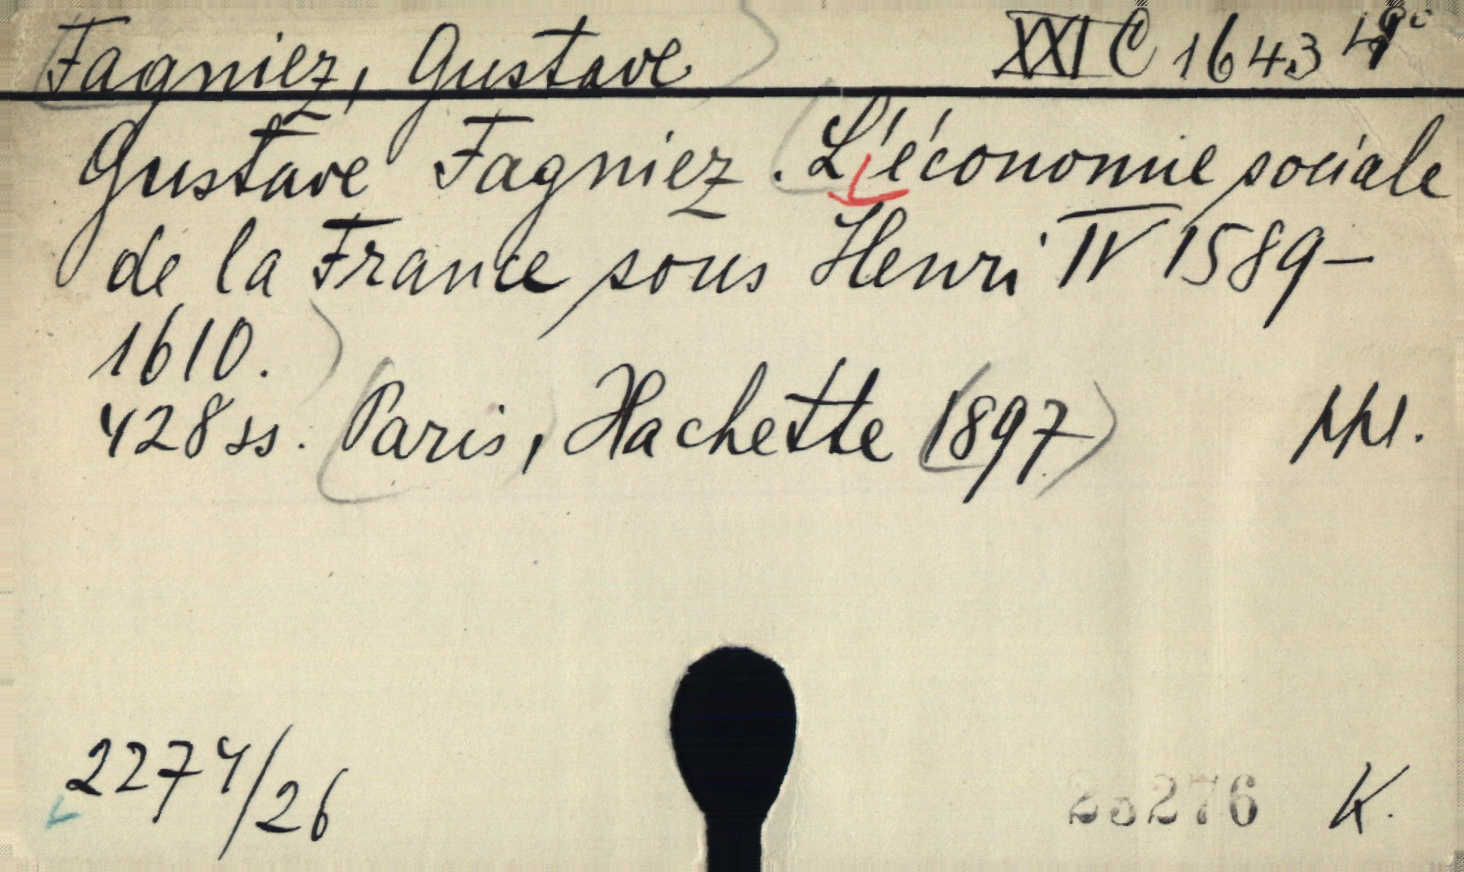 Fagniez, Gustave XXI C 1643
Gustave Fagniez. L'économie sociale
de la France sous Henri IV 1589-
1610.
428 ss. Paris, Hachette 1897 ppl.
2274/26
23276 K.